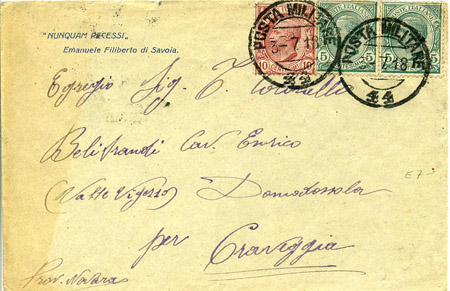 "NUNQUAM RECESSI„
Emanuele Filiberto di Savoia.
POSTA MILITARE
3-7 18
44
POSTA MILITARE
7 18
44
POSTE ITALIANE
10 10
5 5
Egregio Sig. T.
Belifrandi Cav. Enrico
(Valle Vigezzo) Domodossola
per Craveggia
Prov. Novara
E 7-